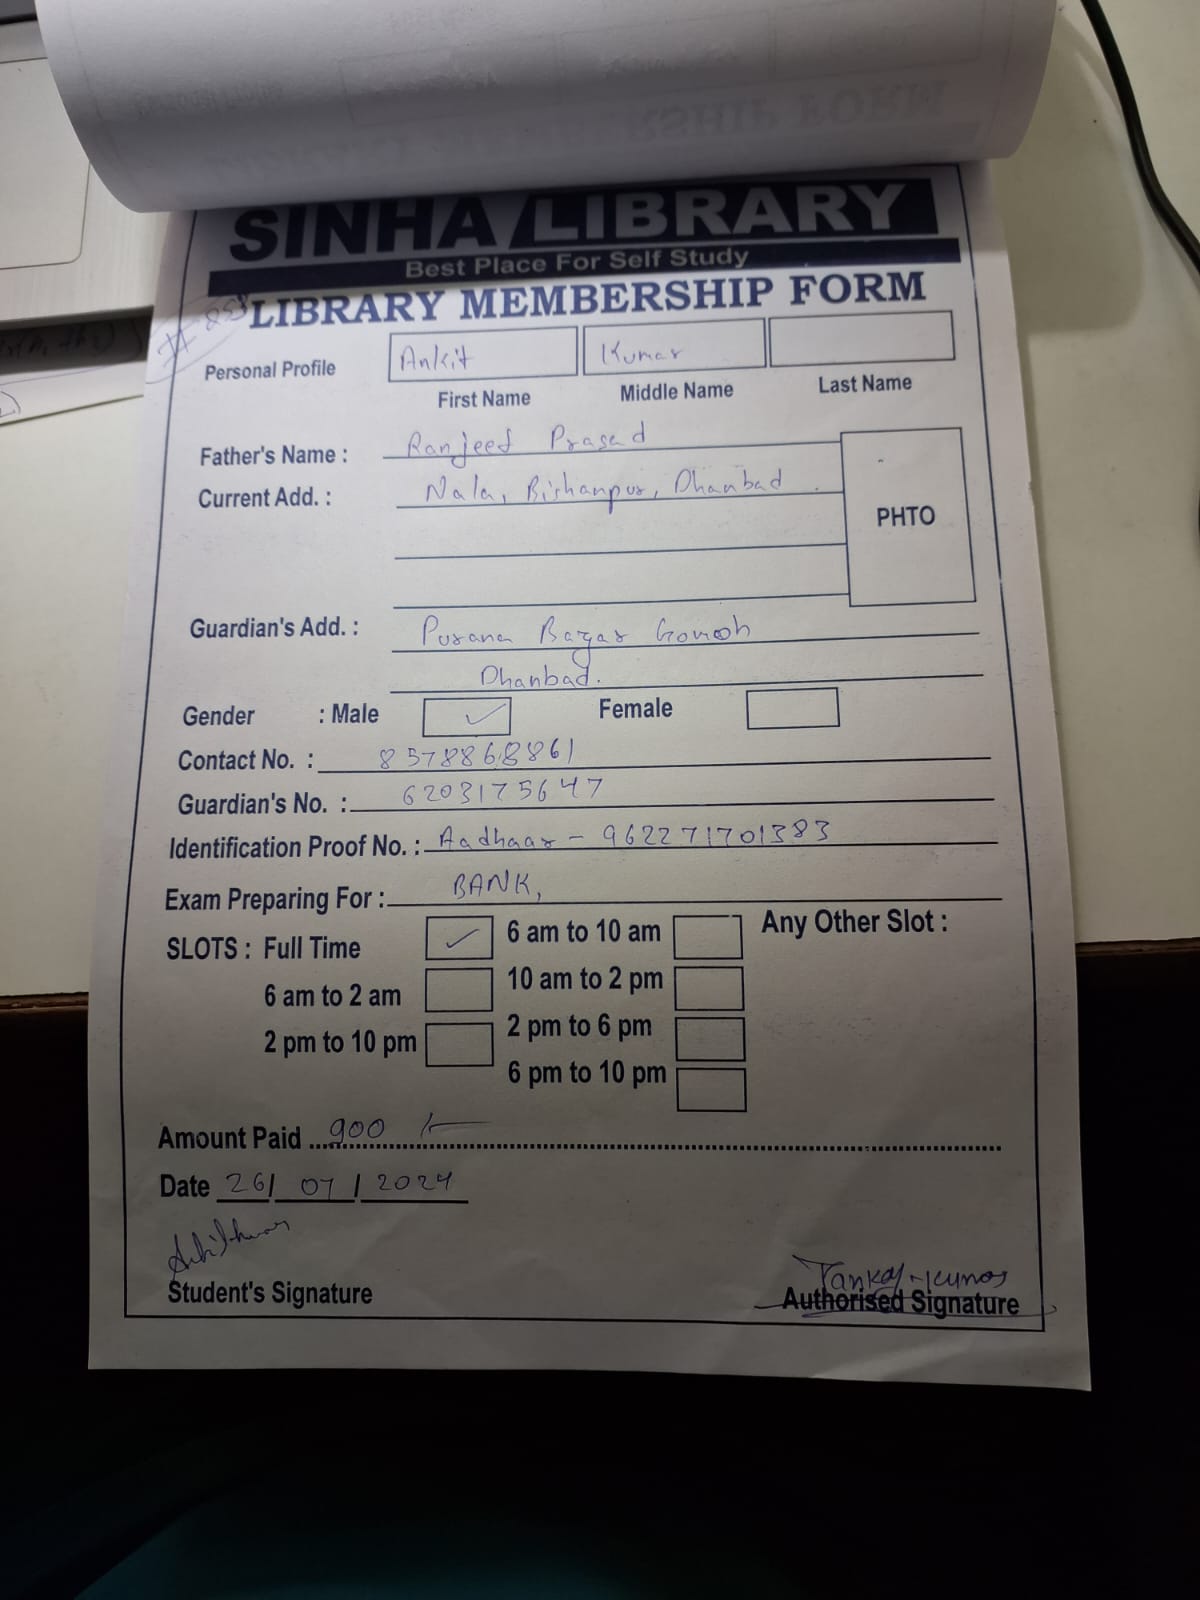 SINHA LIBRARY
Best Place For Self Study
LIBRARY MEMBERSHIP FORM
# 858
Personal Profile Ankit Kumar
First Name Middle Name Last Name
Father's Name : Ranjeet Prasad
Current Add. : Nala, Bishanpur, Dhanbad
PHTO
Guardian's Add. : Purana Bazar
Dhanbad.
Gender : Male ✓ Female
Contact No. : 8578868861
Guardian's No. : 6203175647
Identification Proof No. : Aadhaar - 962271701383
Exam Preparing For : BANK,
SLOTS : Full Time ✓ 6 am to 10 am Any Other Slot :
6 am to 2 am 10 am to 2 pm
2 pm to 10 pm 2 pm to 6 pm
6 pm to 10 pm
Amount Paid 900 /-
Date 26/ 07 / 2024
Student's Signature
Kumar
Authorised Signature